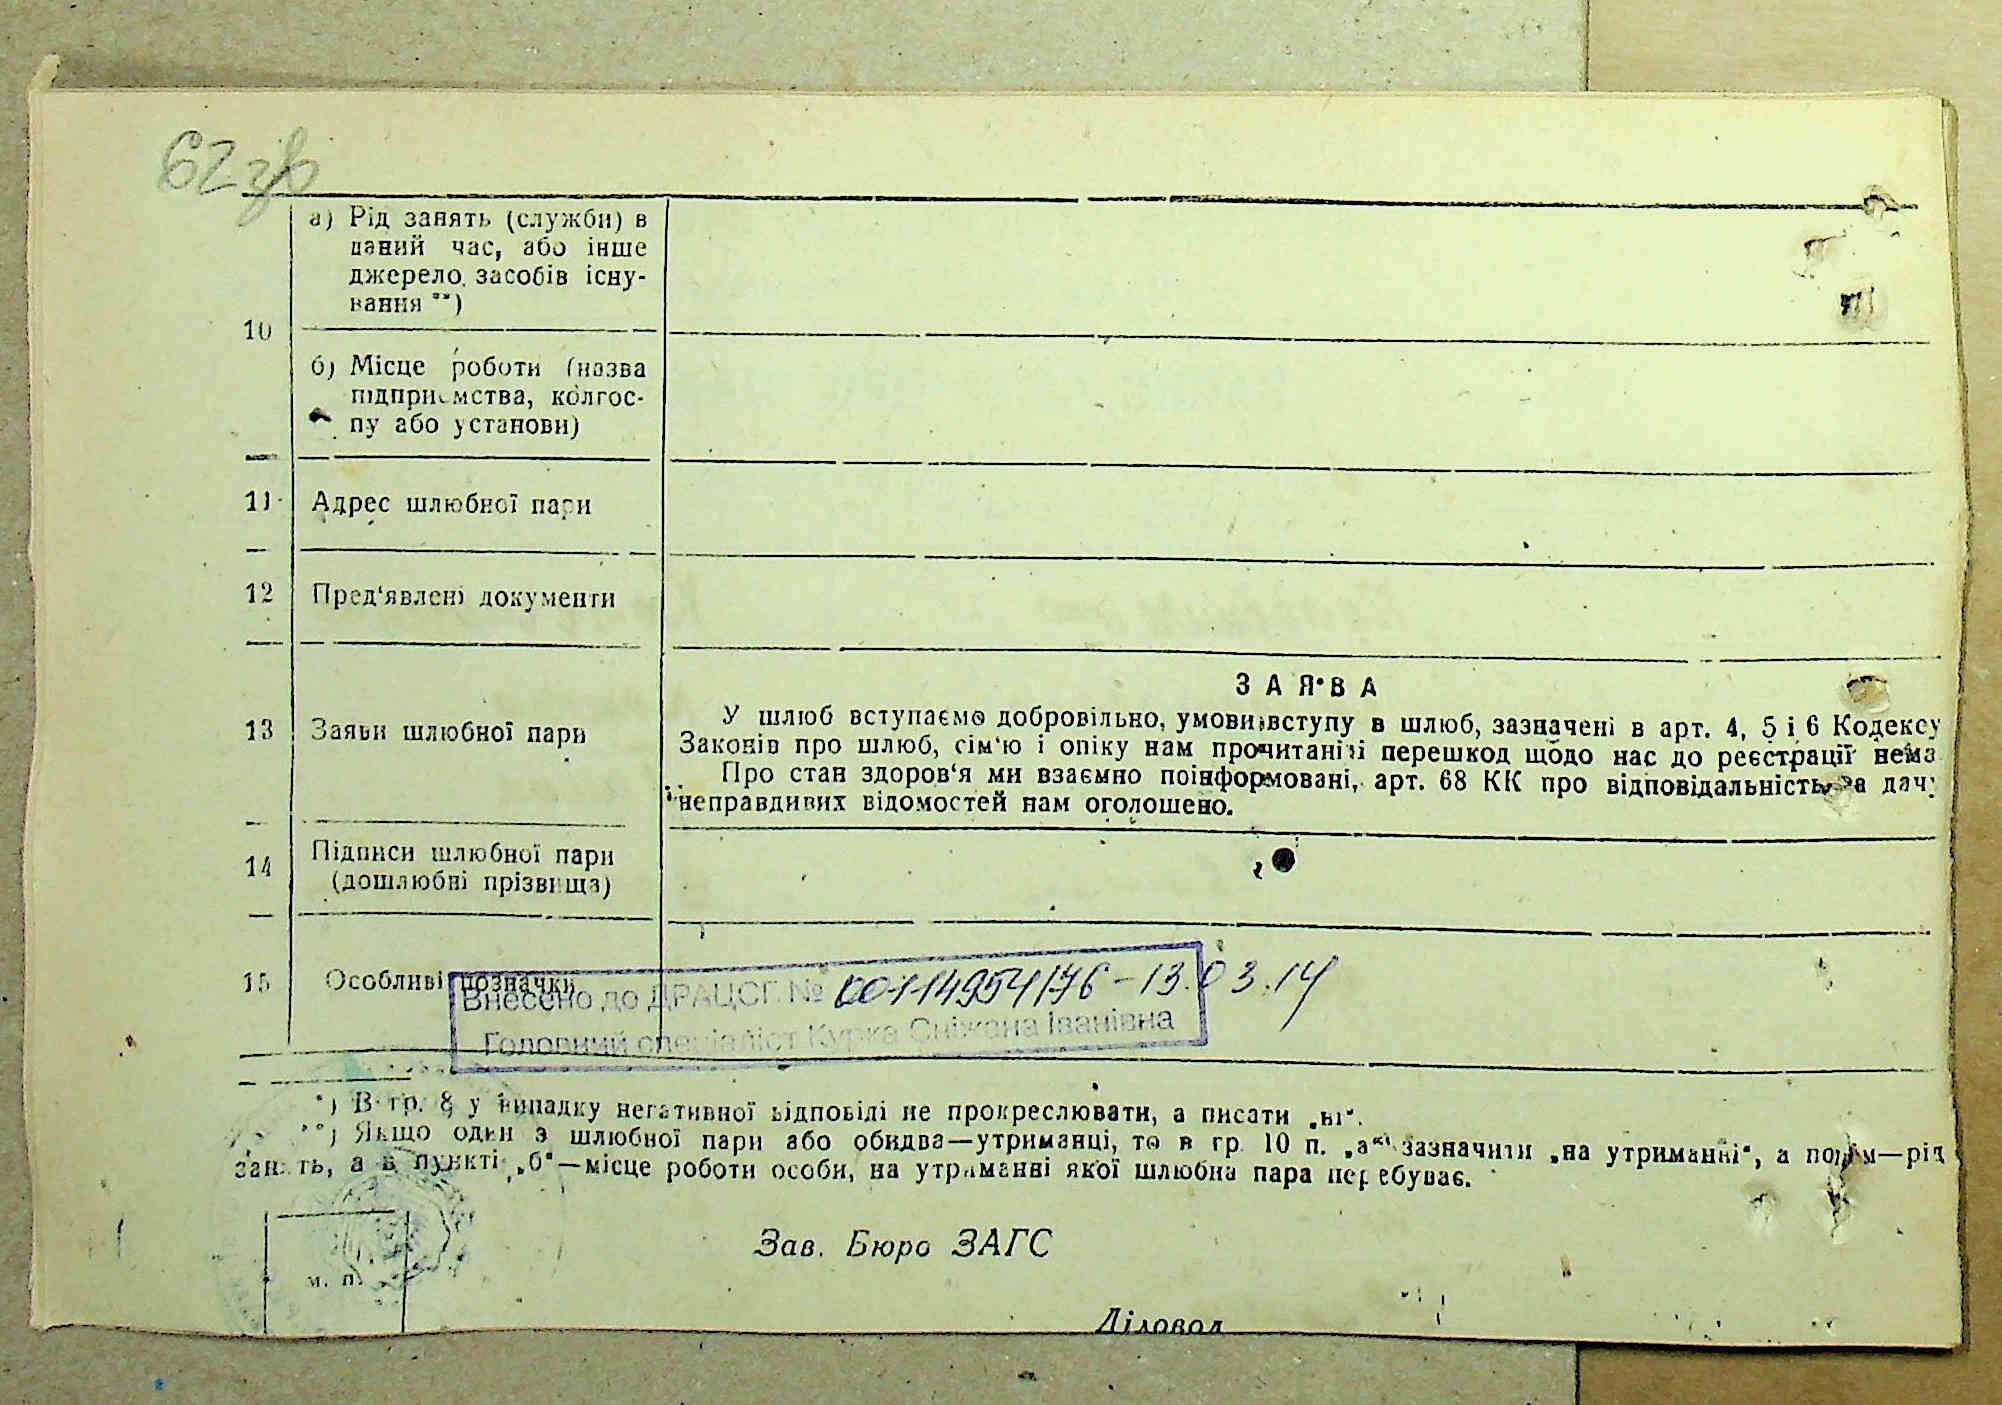 62 зв
а) Рід занять (служби) в
даний час, або інше
джерело засобів існу-
вання **)
10
б) Місце роботи (назва
підприємства, колгос-
пу або установи)
11 Адрес шлюбної пари
12 Пред‘явлені документи
ЗАЯВА
13 Заяви шлюбної пари
У шлюб вступаємо добровільно, умови вступу в шлюб, зазначені в арт. 4, 5 і 6 Кодексу
Законів про шлюб, сім‘ю і опіку нам прочитані і перешкод щодо нас до реєстрації нема
Про стан здоров‘я ми взаємно поінформовані, арт. 68 КК про відповідальність за дачу
неправдивих відомостей нам оголошено.
14 Підписи шлюбної пари
(дошлюбні прізвища)
15 Особливі позначки
Внесено до ДРАЦСГ № 00114954176 - 13.03.14
Головний спеціаліст Курка Сніжана Іванівна
*) В гр. 8 у випадку негативної відповіді не прокреслювати, а писати „ні“.
**) Якщо один з шлюбної пари або обидва—утриманці, то в гр. 10 п. „а“ зазначити „на утриманні“, а потім—рід
занять, а в пункті „б“—місце роботи особи, на утриманні якої шлюбна пара перебуває.
Зав. Бюро ЗАГС
м. п.
Діловод